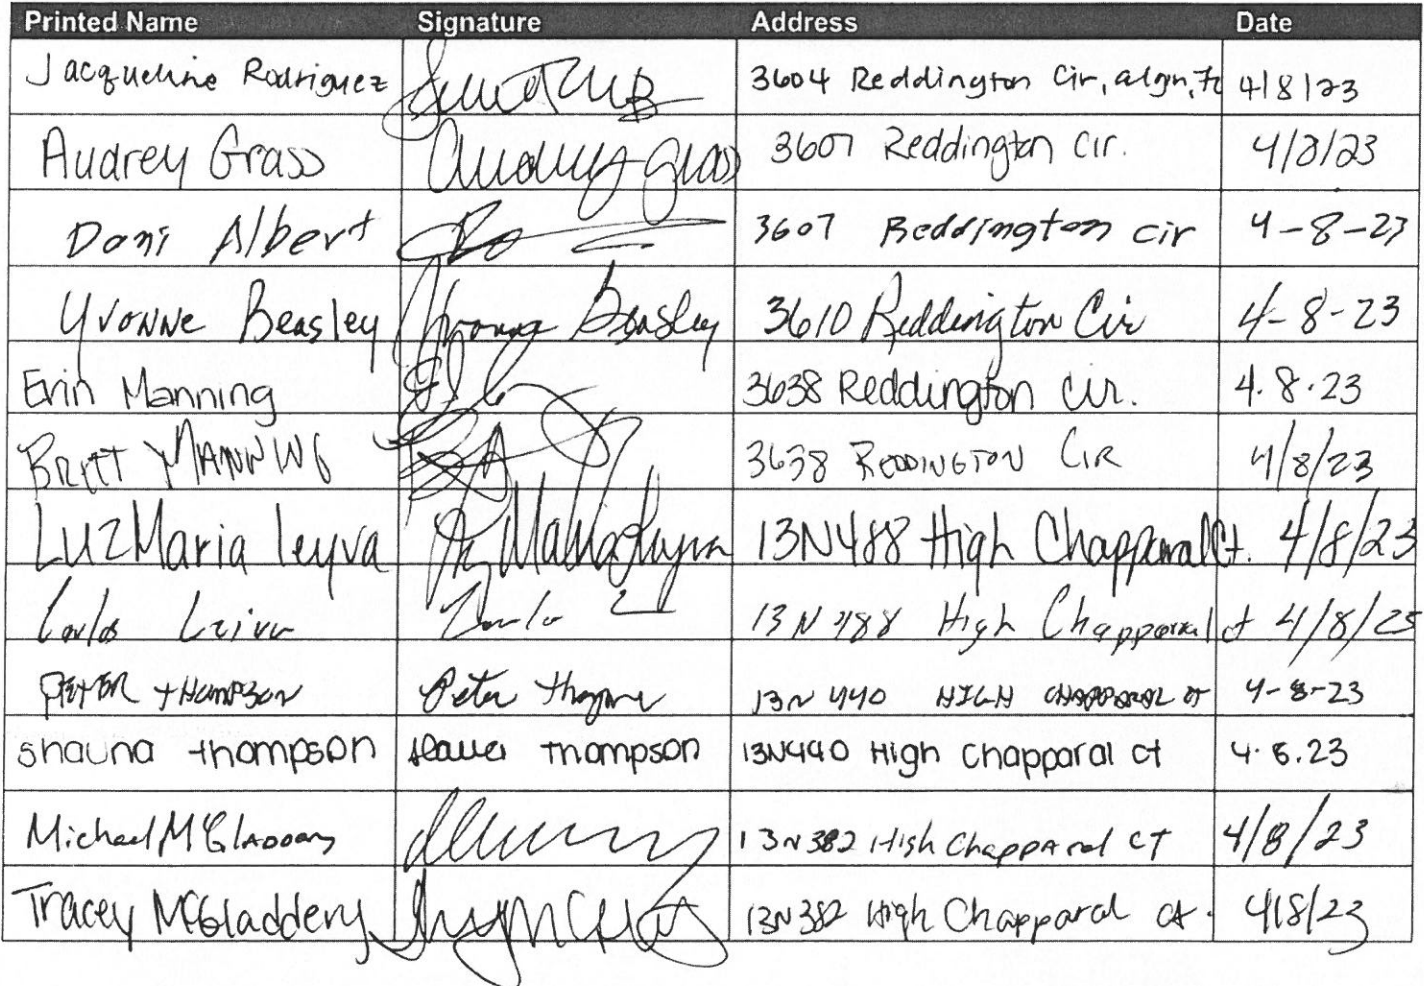 Printed Name Signature Address Date
Jacqueline Rodriguez 3604 Reddington Cir, algn, 4/8/23
Audrey Grass Audrey Grass 3607 Reddington Cir. 4/8/23
Doni Albert 3607 Reddington cir 4-8-23
Yvonne Beasley Yvonne Beasley 3610 Reddington Cir 4-8-23
Erin Manning 3638 Reddington Cir. 4.8.23
BRETT MANNING 3638 REDDINGTON CIR 4/8/23
Luz Maria leyva Luz Maria Leyva 13N488 High Chapparal Ct. 4/8/23
Carlos 13N488 High Chapparal ct 4/8/23
PETER tHOMPSON Peter 13N440 HIGH CHAPPARAL ct 4-8-23
Shauna thompson Thompson 13N440 High Chapparal ct 4.8.23
Michael 13N382 High Chapparal CT 4/8/23
Tracey McGladdery 13N382 High Chapparal ct. 4/8/23